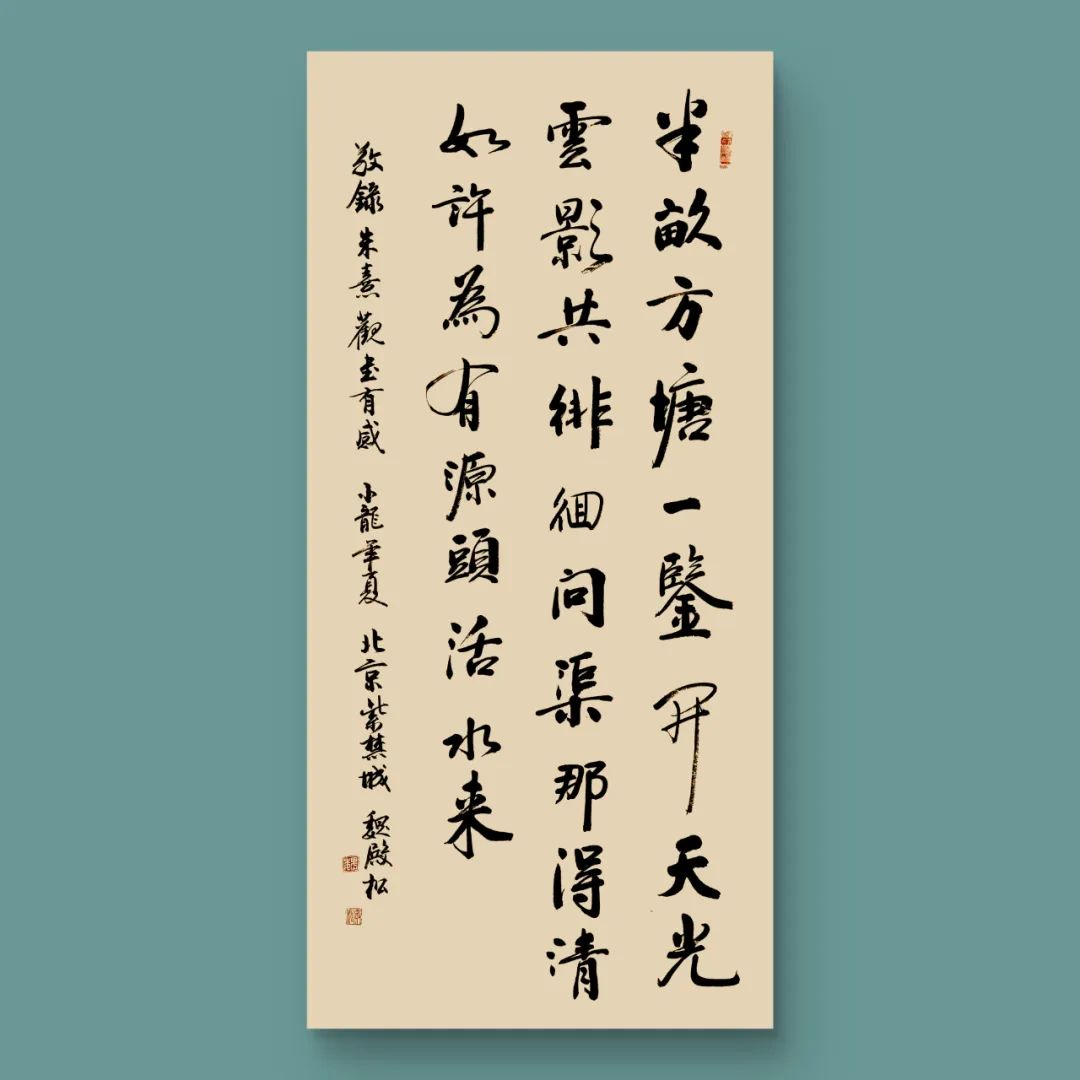 半畝方塘一鑒開天光
雲影共徘徊問渠那得清
如許為有源頭活水来
敬錄朱熹觀書有感 小龍年夏 北京紫禁城 魏殿松